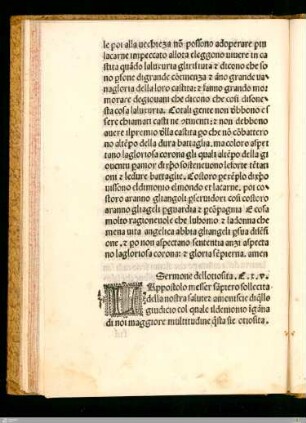 le poi alla vechieza nō possono adoperare piu
la carne i peccato allora eleggono uiuere in ca
stita quādo la luxuria gli rifiuta & dicono che so
no psone di grande & āno grande ua
nagloria della loro castita: & fanno grande mor
morare de giouani che dicono che cosi disone
sta cosa la luxuria. Cotali gente non debbono e
ssere chiamati casti ne & non debbono
auere il premio della castita po che nō cōbattero
no al tēpo della dura battaglia. ma coloro aspet
tano la gloriosa corona gli quali al tēpo della gi
ouentu p amor di xpo sostenuono le forte tētati
oni & le dure battaglie. Costoro per ēplo di xpo
uissono el dimonio el mondo e la carne. poi co
storo aranno gli angeli p seruidori cosi costoro
aranno gli angeli p guardia & p cōpagnia E cosa
molto ragioneuole che lhuomo & la donna che
mena uita angelica abbia gli angeli p sua difesi
one. & po non aspectano sententia anzi aspecta
no la gloriosa corona: & gloria sēpiterna. amen
Sermone dell otiosita. C. x. v.
LAppostolo messer sā piero sollecita
della nostra salute & amoniscie di qllo
giudicio col quale il demonio īgāna
di noi maggiore multitudine qsta sie otiosita.